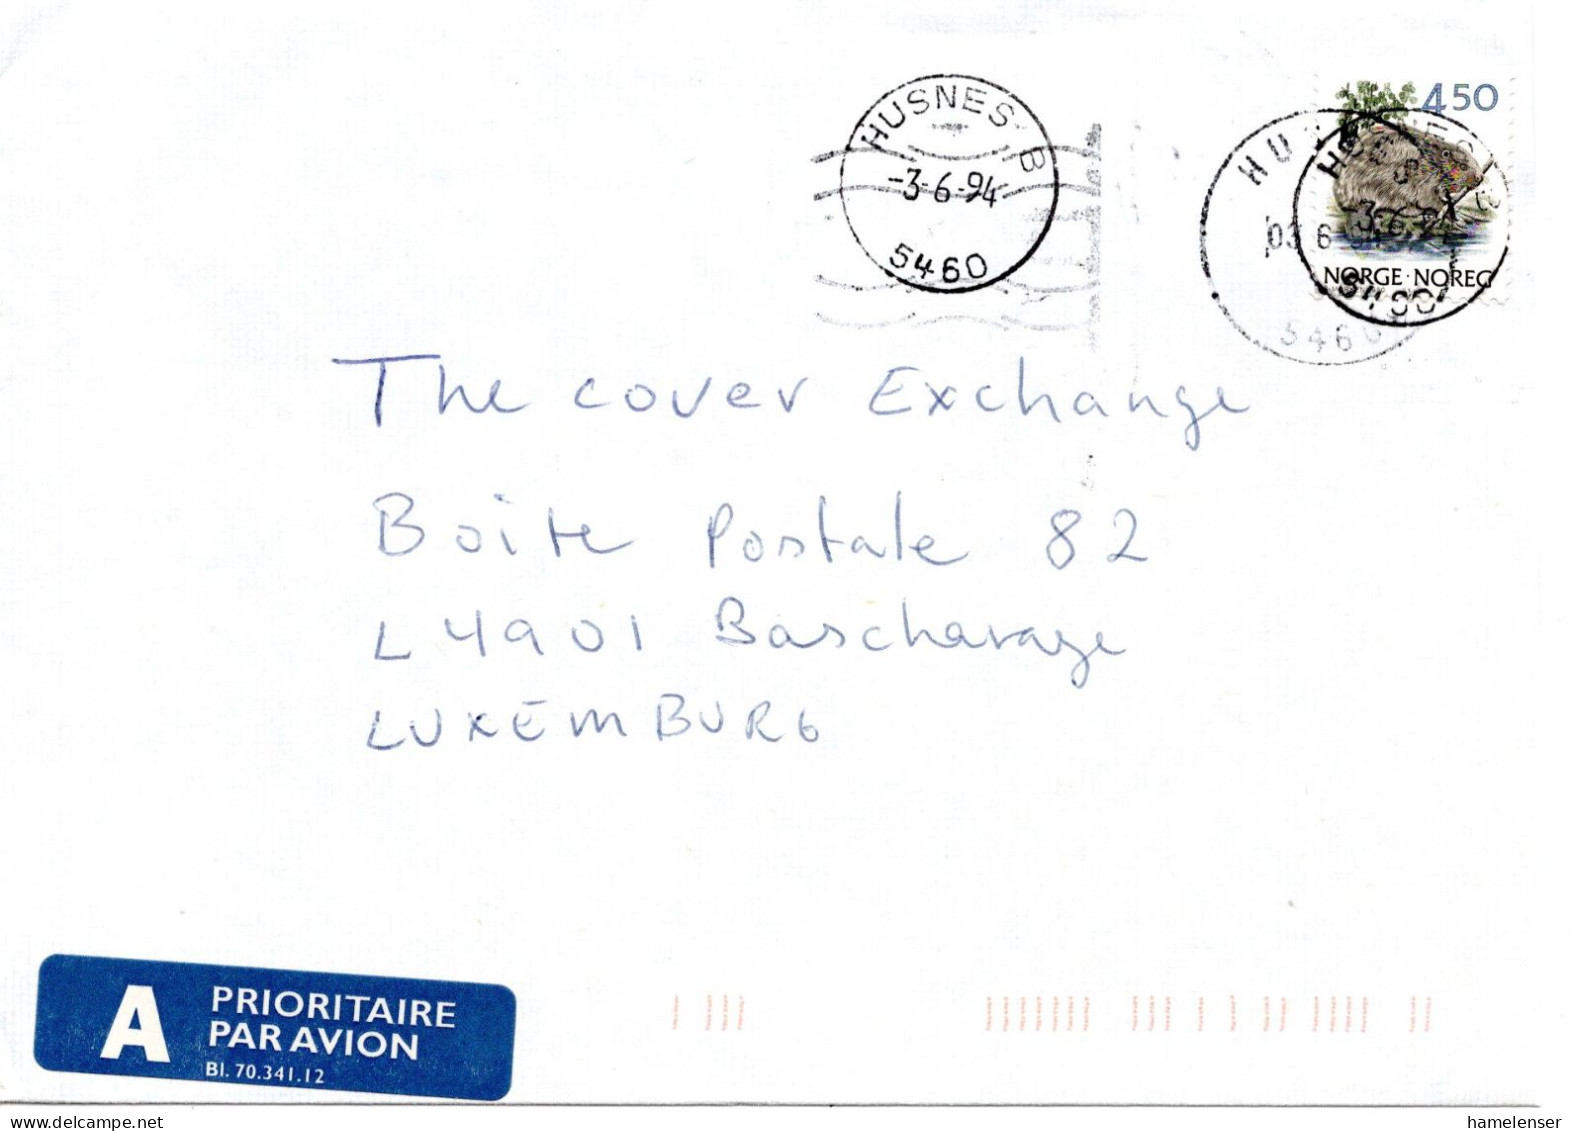 HUSNES B
-3-6-94
5460
450
NORGE · NOREG
5460
The cover Exchange
Boite Postale 82
L 4901 Bascharage
LUXEMBURG
A PRIORITAIRE
PAR AVION
Bl. 70.341.12
www.delcampe.net
hamelenser